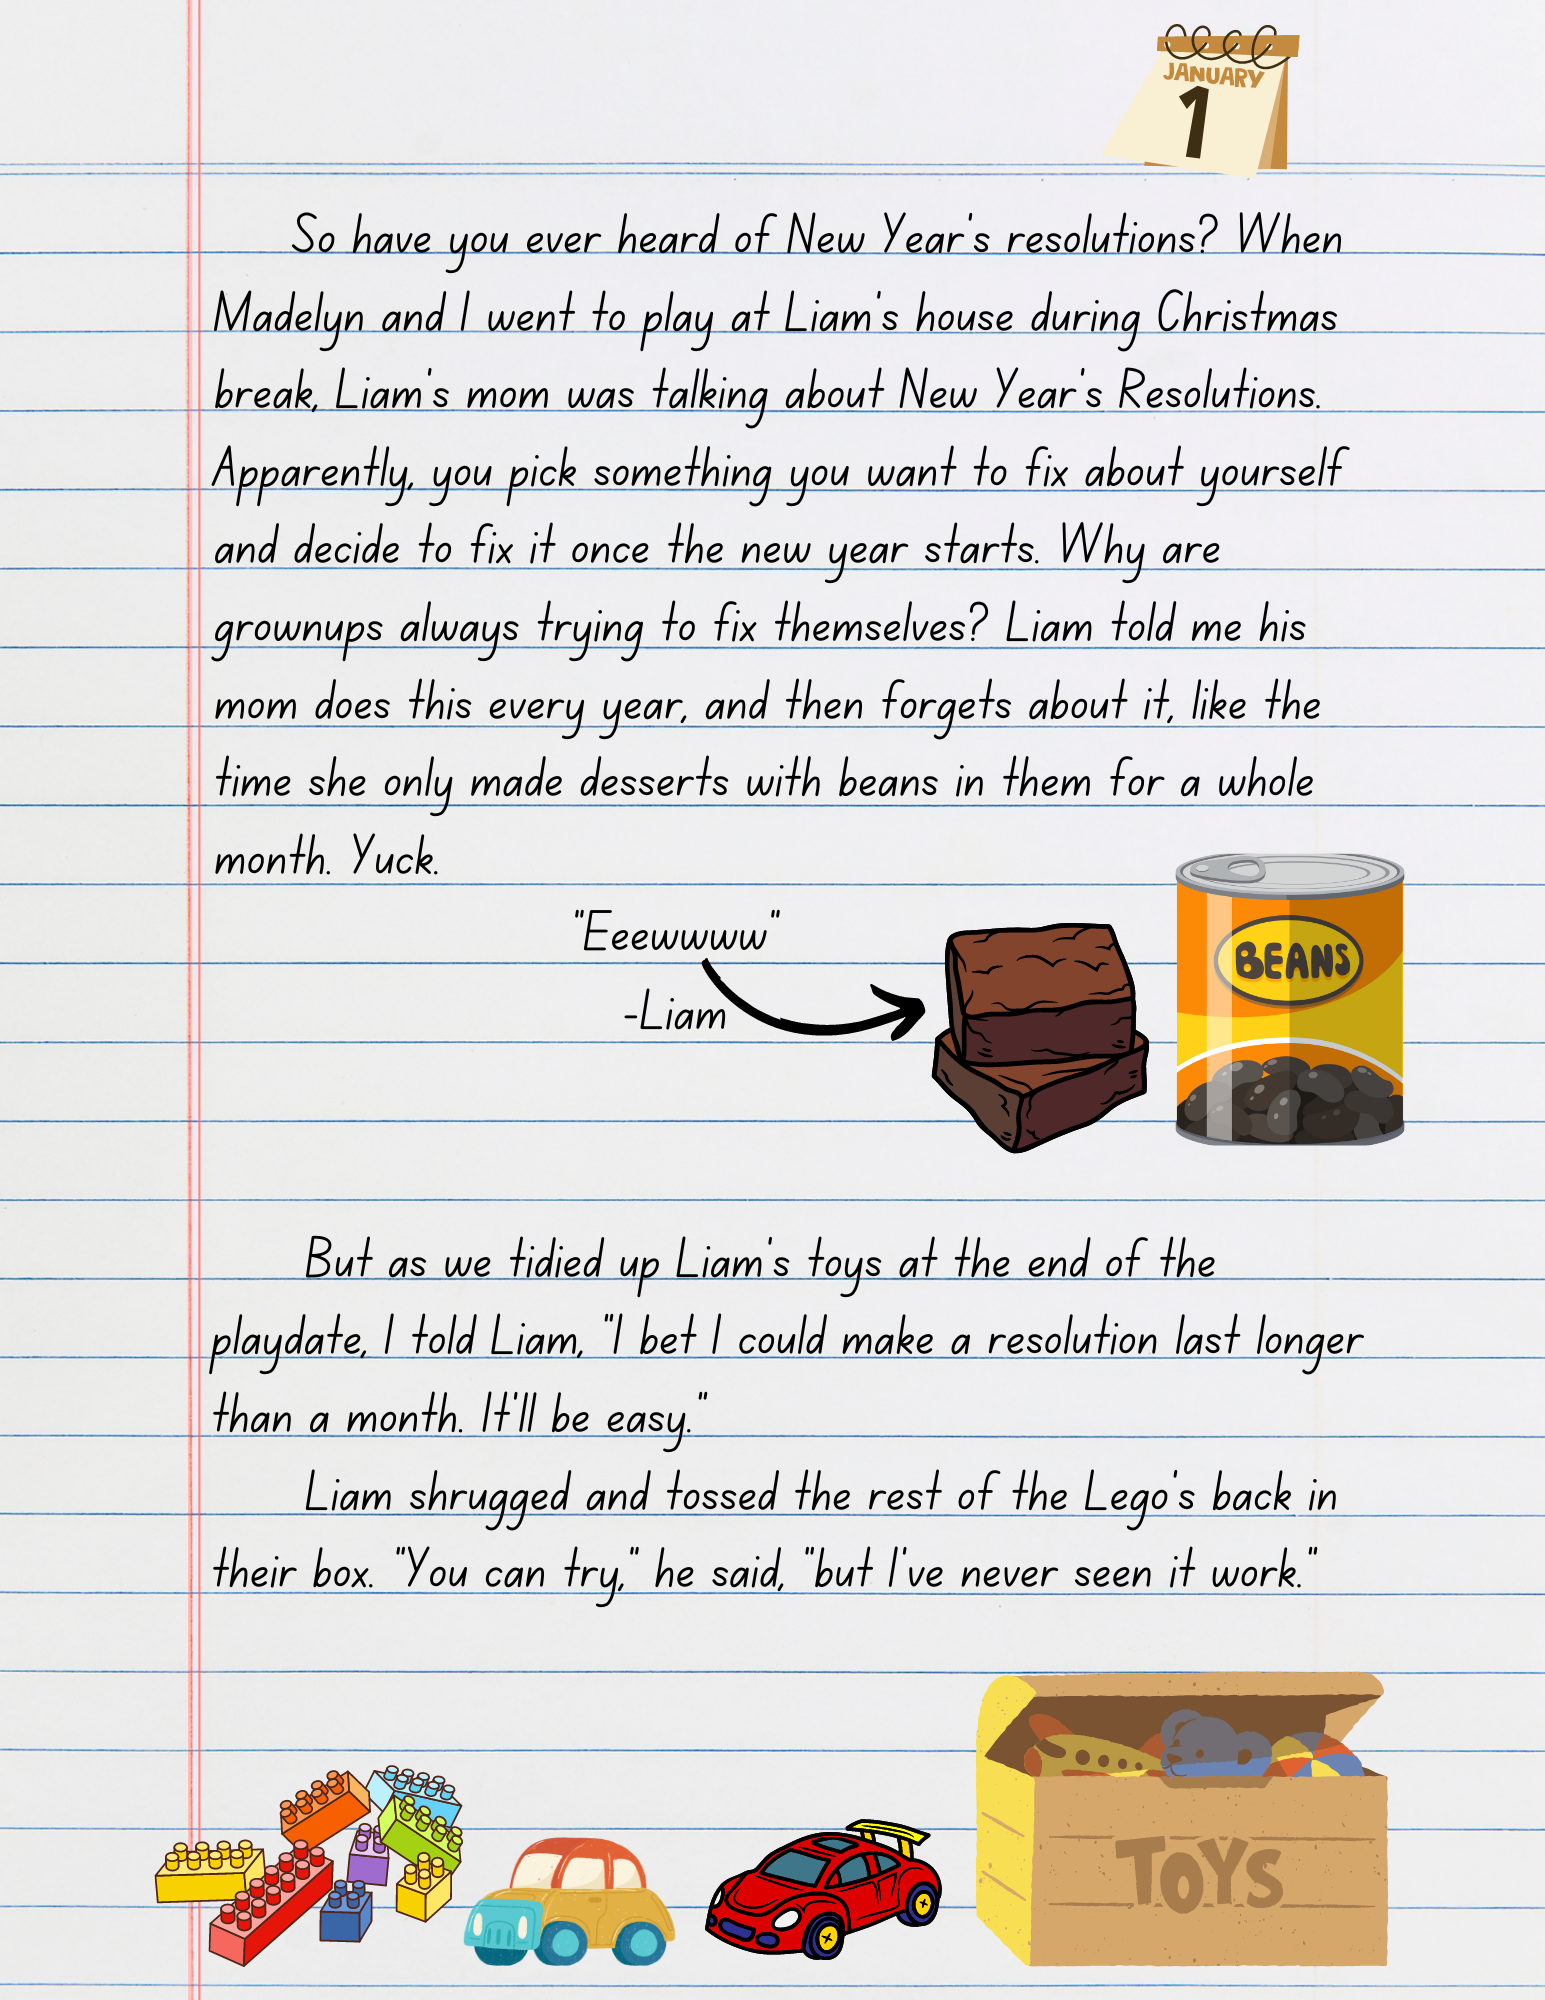 JANUARY
1
So have you ever heard of New Year's resolutions? When
Madelyn and I went to play at Liam's house during Christmas
break, Liam's mom was talking about New Year's Resolutions.
Apparently, you pick something you want to fix about yourself
and decide to fix it once the new year starts. Why are
grownups always trying to fix themselves? Liam told me his
mom does this every year, and then forgets about it, like the
time she only made desserts with beans in them for a whole
month. Yuck.
"Eeewwww"
-Liam
BEANS
But as we tidied up Liam's toys at the end of the
playdate, I told Liam, "I bet I could make a resolution last longer
than a month. It'll be easy."
Liam shrugged and tossed the rest of the Lego's back in
their box. "You can try," he said, "but I've never seen it work."
TOYS